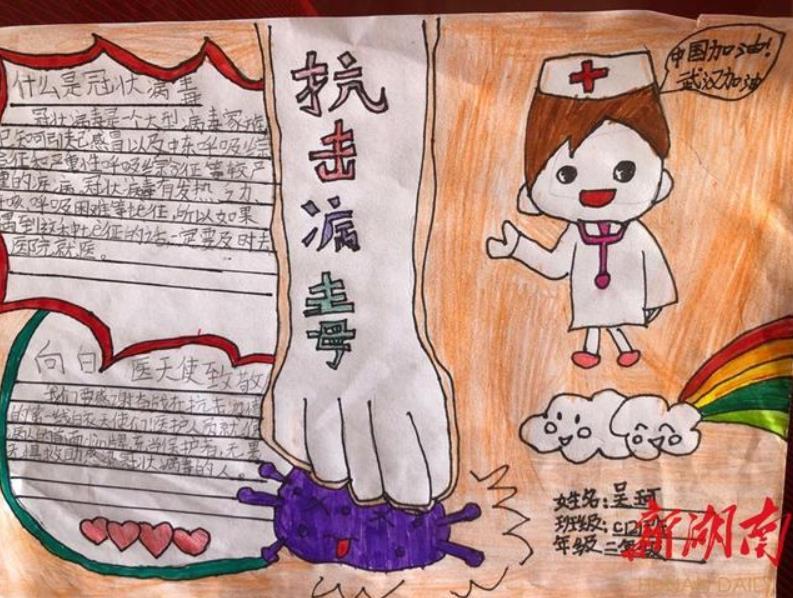 什么是冠状病毒
冠状病毒是一个大型病毒家族
已知可引起感冒以及中东呼吸
征和严重性呼吸综合征等较严
重的疾病,冠状病毒有发热、
咳、呼吸困难等症,所以如果
遇到这种症的话一定要及时去
医院就医。
向白 医天使致敬
我们要感谢奋战在抗击
的第一线白衣天使们!医护人员就
病人的
救助感染冠状病毒的人。
抗
击
病
毒
中国加油!
武汉加油
姓名:吴珂
班级:
年级:二
新湖南
HUNAN DAILY